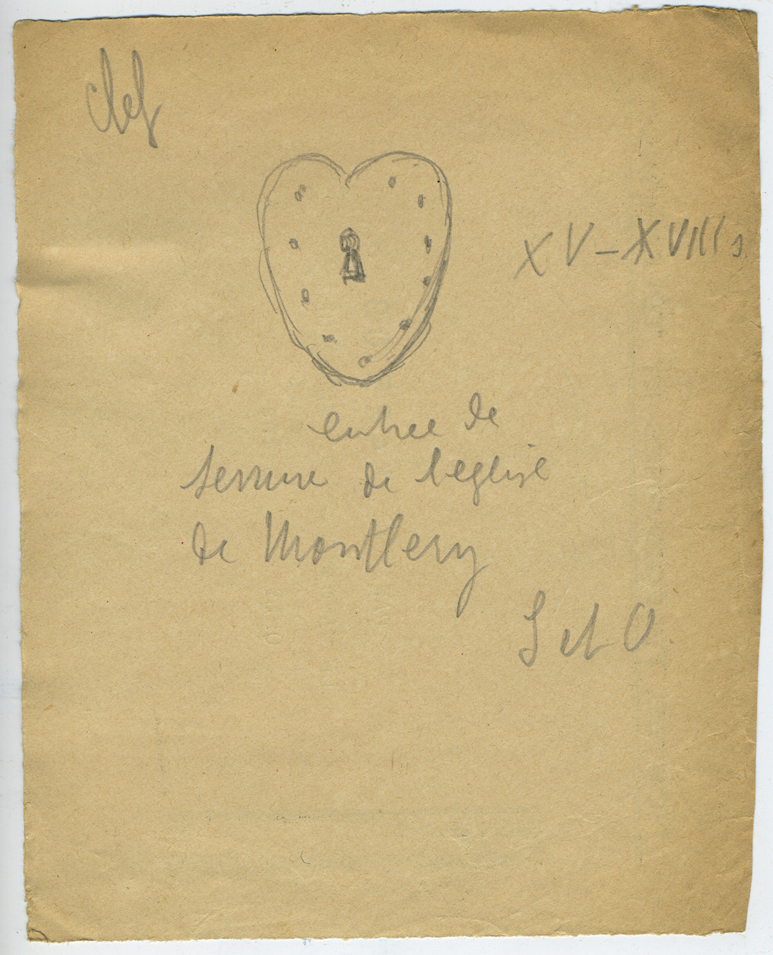 clef
XV – XVIII s.
entree de
serrure de l'eglise
de Montlery
S et O.